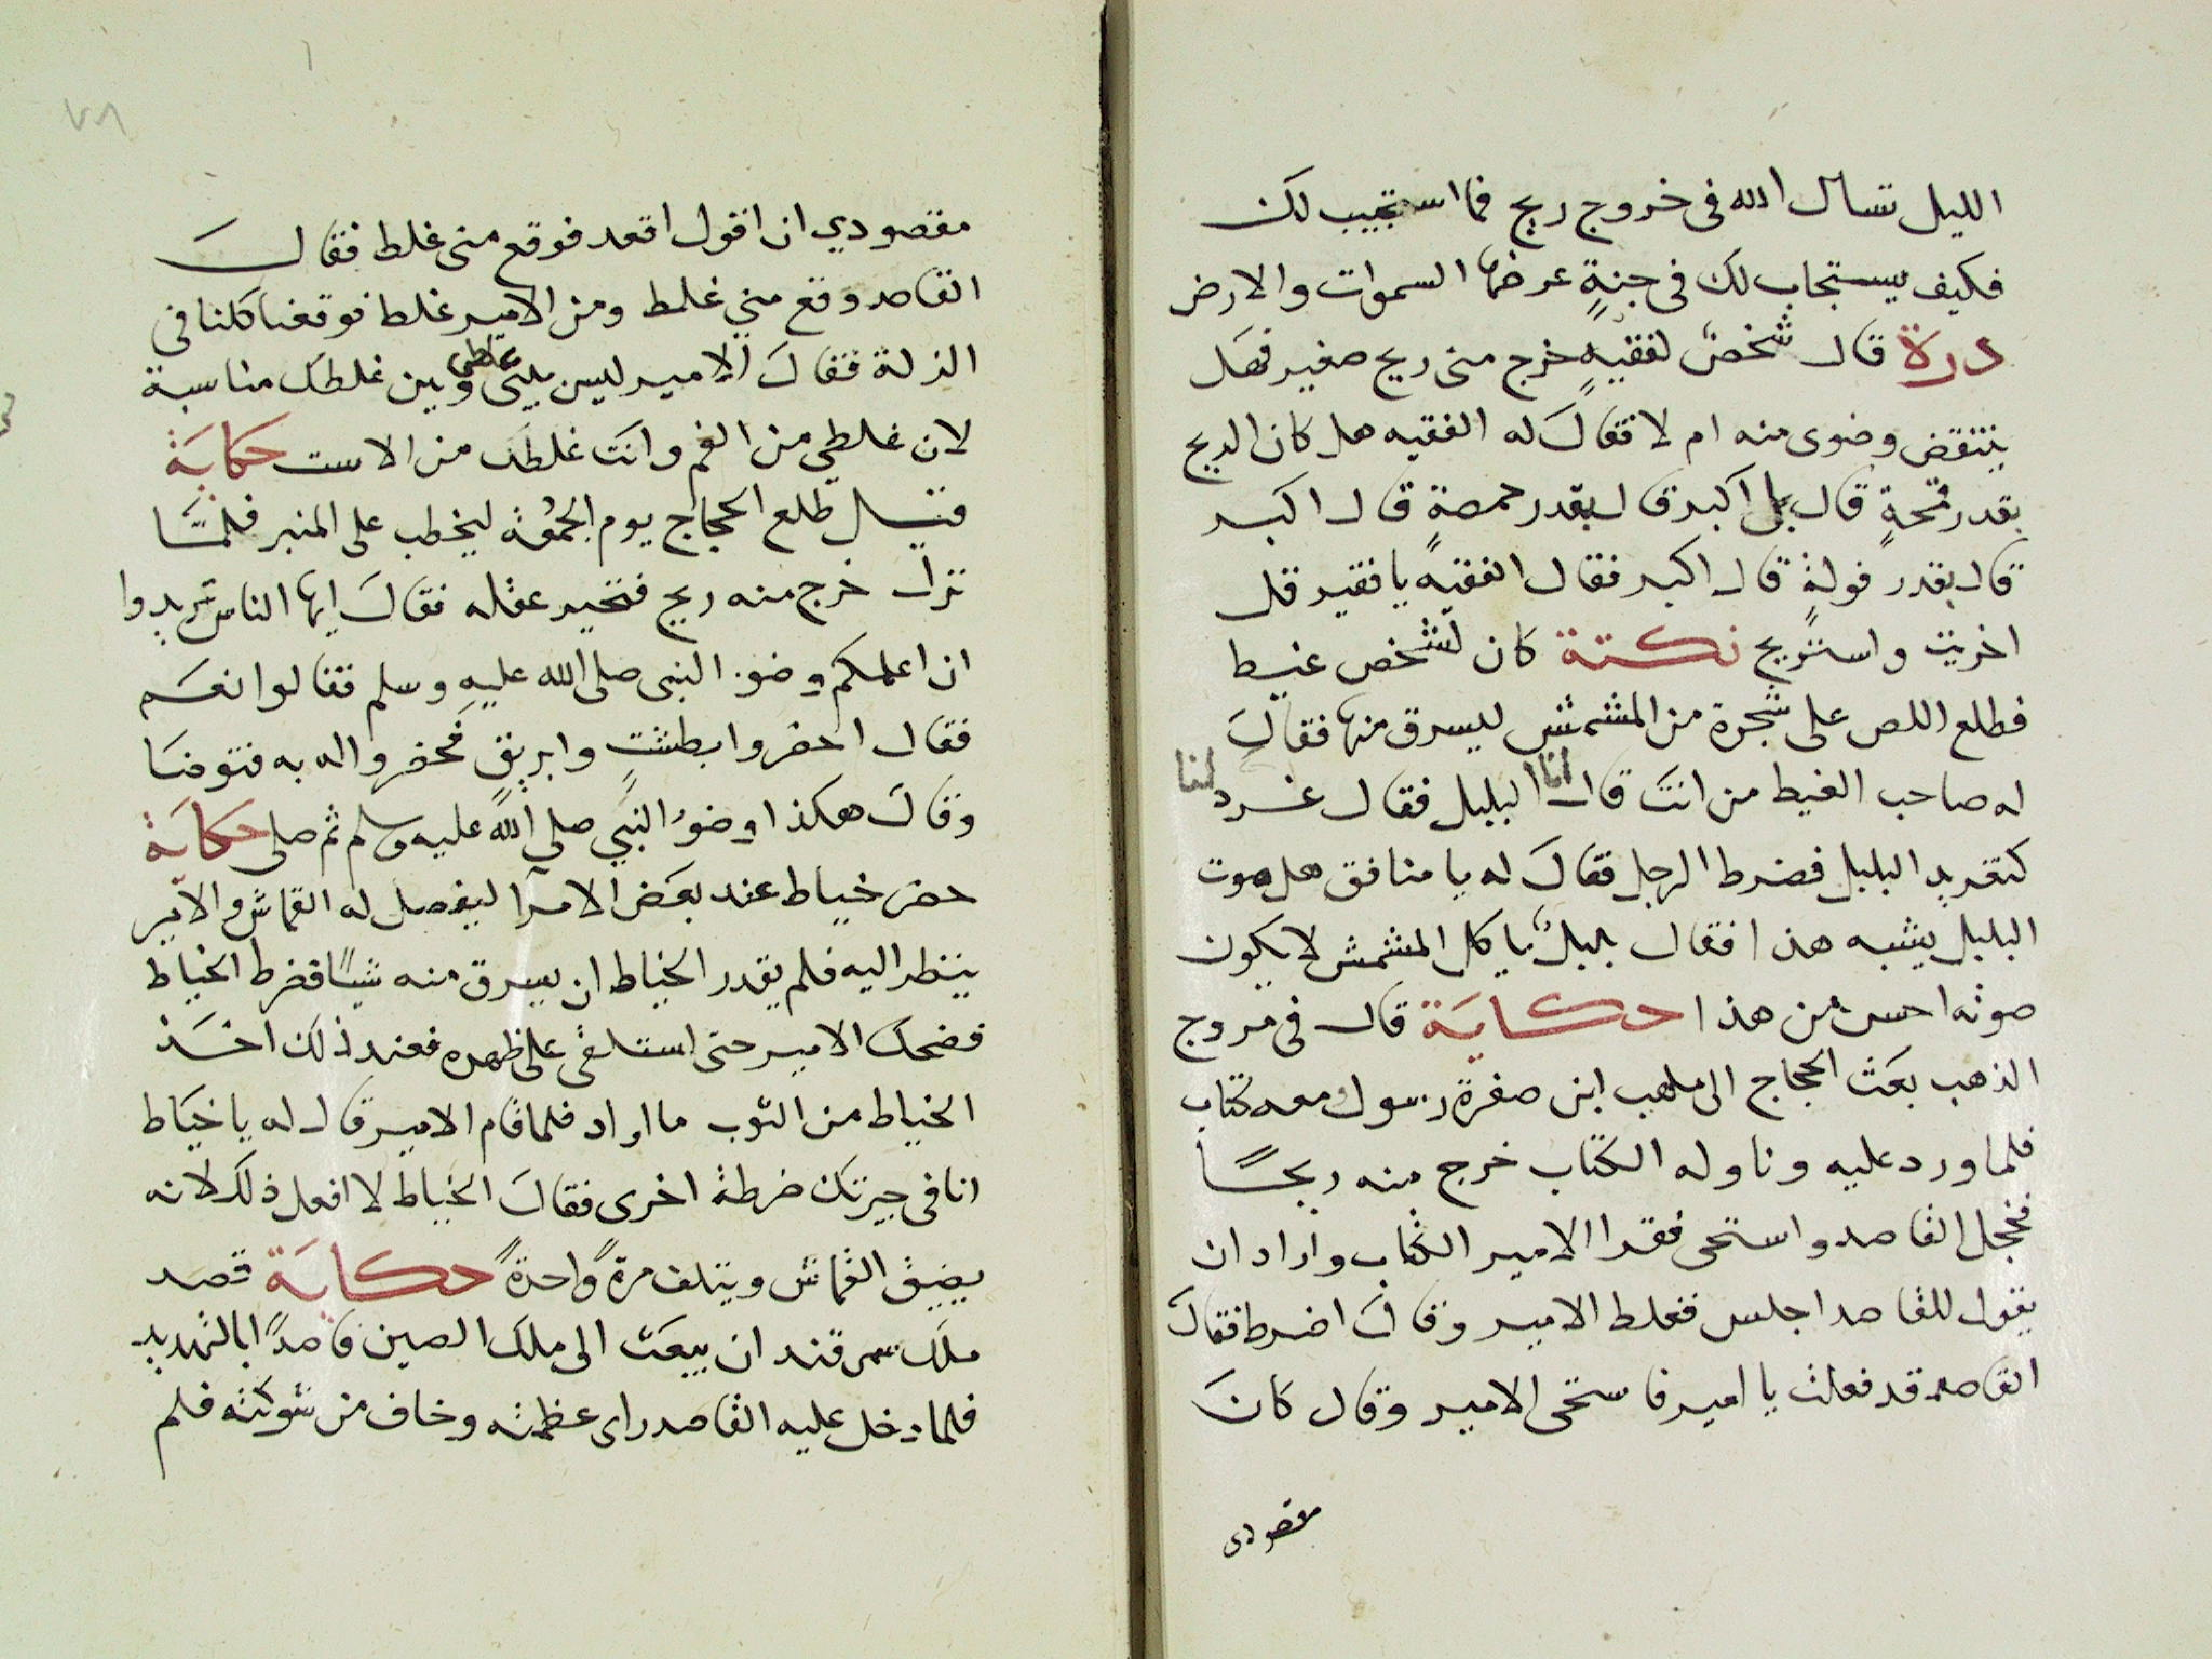 الليل تسال الله فى خروج ريح فما استجيب لك
فكيف يستجاب لك فى جنةٍ عرضها السموات والارض
درة قال شخصٌ لفقيهٍ خرج منى ريح صغير فهل
ينتقض وضوى منه ام لا فقالَ له الفقيه هل كان الريح
بقدر قمحةٍ قال بل اكبر قال بقدر حمصةٍ قال اكبر
قال بقدر فولةٍ قال اكبر فقال الفقيه يا فقير قل
اخريت واستريح نكتة كان لشخص غيط
فطلع اللص على شجرة من المشمش ليسرق منها فقالَ
له صاحب الغيط من انتَ قال انا البلبل فقال غرد لنا
كتغريد البلبل فضرط الرجل فقالَ له يا منافق هل صوت
البلبل يشبه هذا فقال بلبلٌ ياكل المشمش لا يكون
صوته احسن من هذا حكاية قال فى مروج
الذهب بعث الحجاج الى ملهب ابن صفرة رسول معه كتاب
فلما ورد عليه وناوله الكتاب خرج منه ريحًا
فخجل القاصد واستحى فقرا الامير الكتاب واراد ان
يقول للقاصد اجلس فغلط الامير وقال اضرط فقال
القاصد قد فعلت يا امير فاستحى الامير وقال كانَ
مقصودى
٧٨
مقصودي ان اقول اقعد فوقع منى غلط فقالَ
القاصد وقع مني غلط ومن الامير غلط فوقعنا كلنا فى
الزلة فقالَ الامير ليس بين غلطى وبين غلطك مناسبة
لان غلطي من الفم وانتَ غلطك من الاست حكاية
قيل طلع الحجاج يوم الجمعة ليخطب على المنبر فلمّا
نزل خرج منه ريح فتحير عقله فقالَ ايها الناس تريدوا
ان اعلمكم وضو النبى صلى الله عليه وسلم فقالوا نعم
فقال احضروا بطشتٍ وابريقٍ فحضروا له به فتوضا
وقالَ هكذا وضوُ النبي صلي الله عليه وسلم ثم صلى حكاية
حضر خياط عند بعض الامرا ليفصل له القماش والامير
ينظر اليه فلم يقدر الخياط ان يسرق منه شيئًا فضرط الخياط
فضحك الامير حتى استلقى على ظهره فعند ذلك اخذ
الخياط من الثوب ما اراد فلما قام الامير قال له يا خياط
انا فى جيرتك ضرطة اخرى فقالَ الخياط لا افعل ذلك لانه
يضيق القماش ويتلف مرةً واحدةً حكاية قصد
ملك سمرقند ان يبعث الى ملك الصين قاصدًا بالتهديد
فلما دخل عليه القاصد راى عظمته وخاف من شوكته فلم